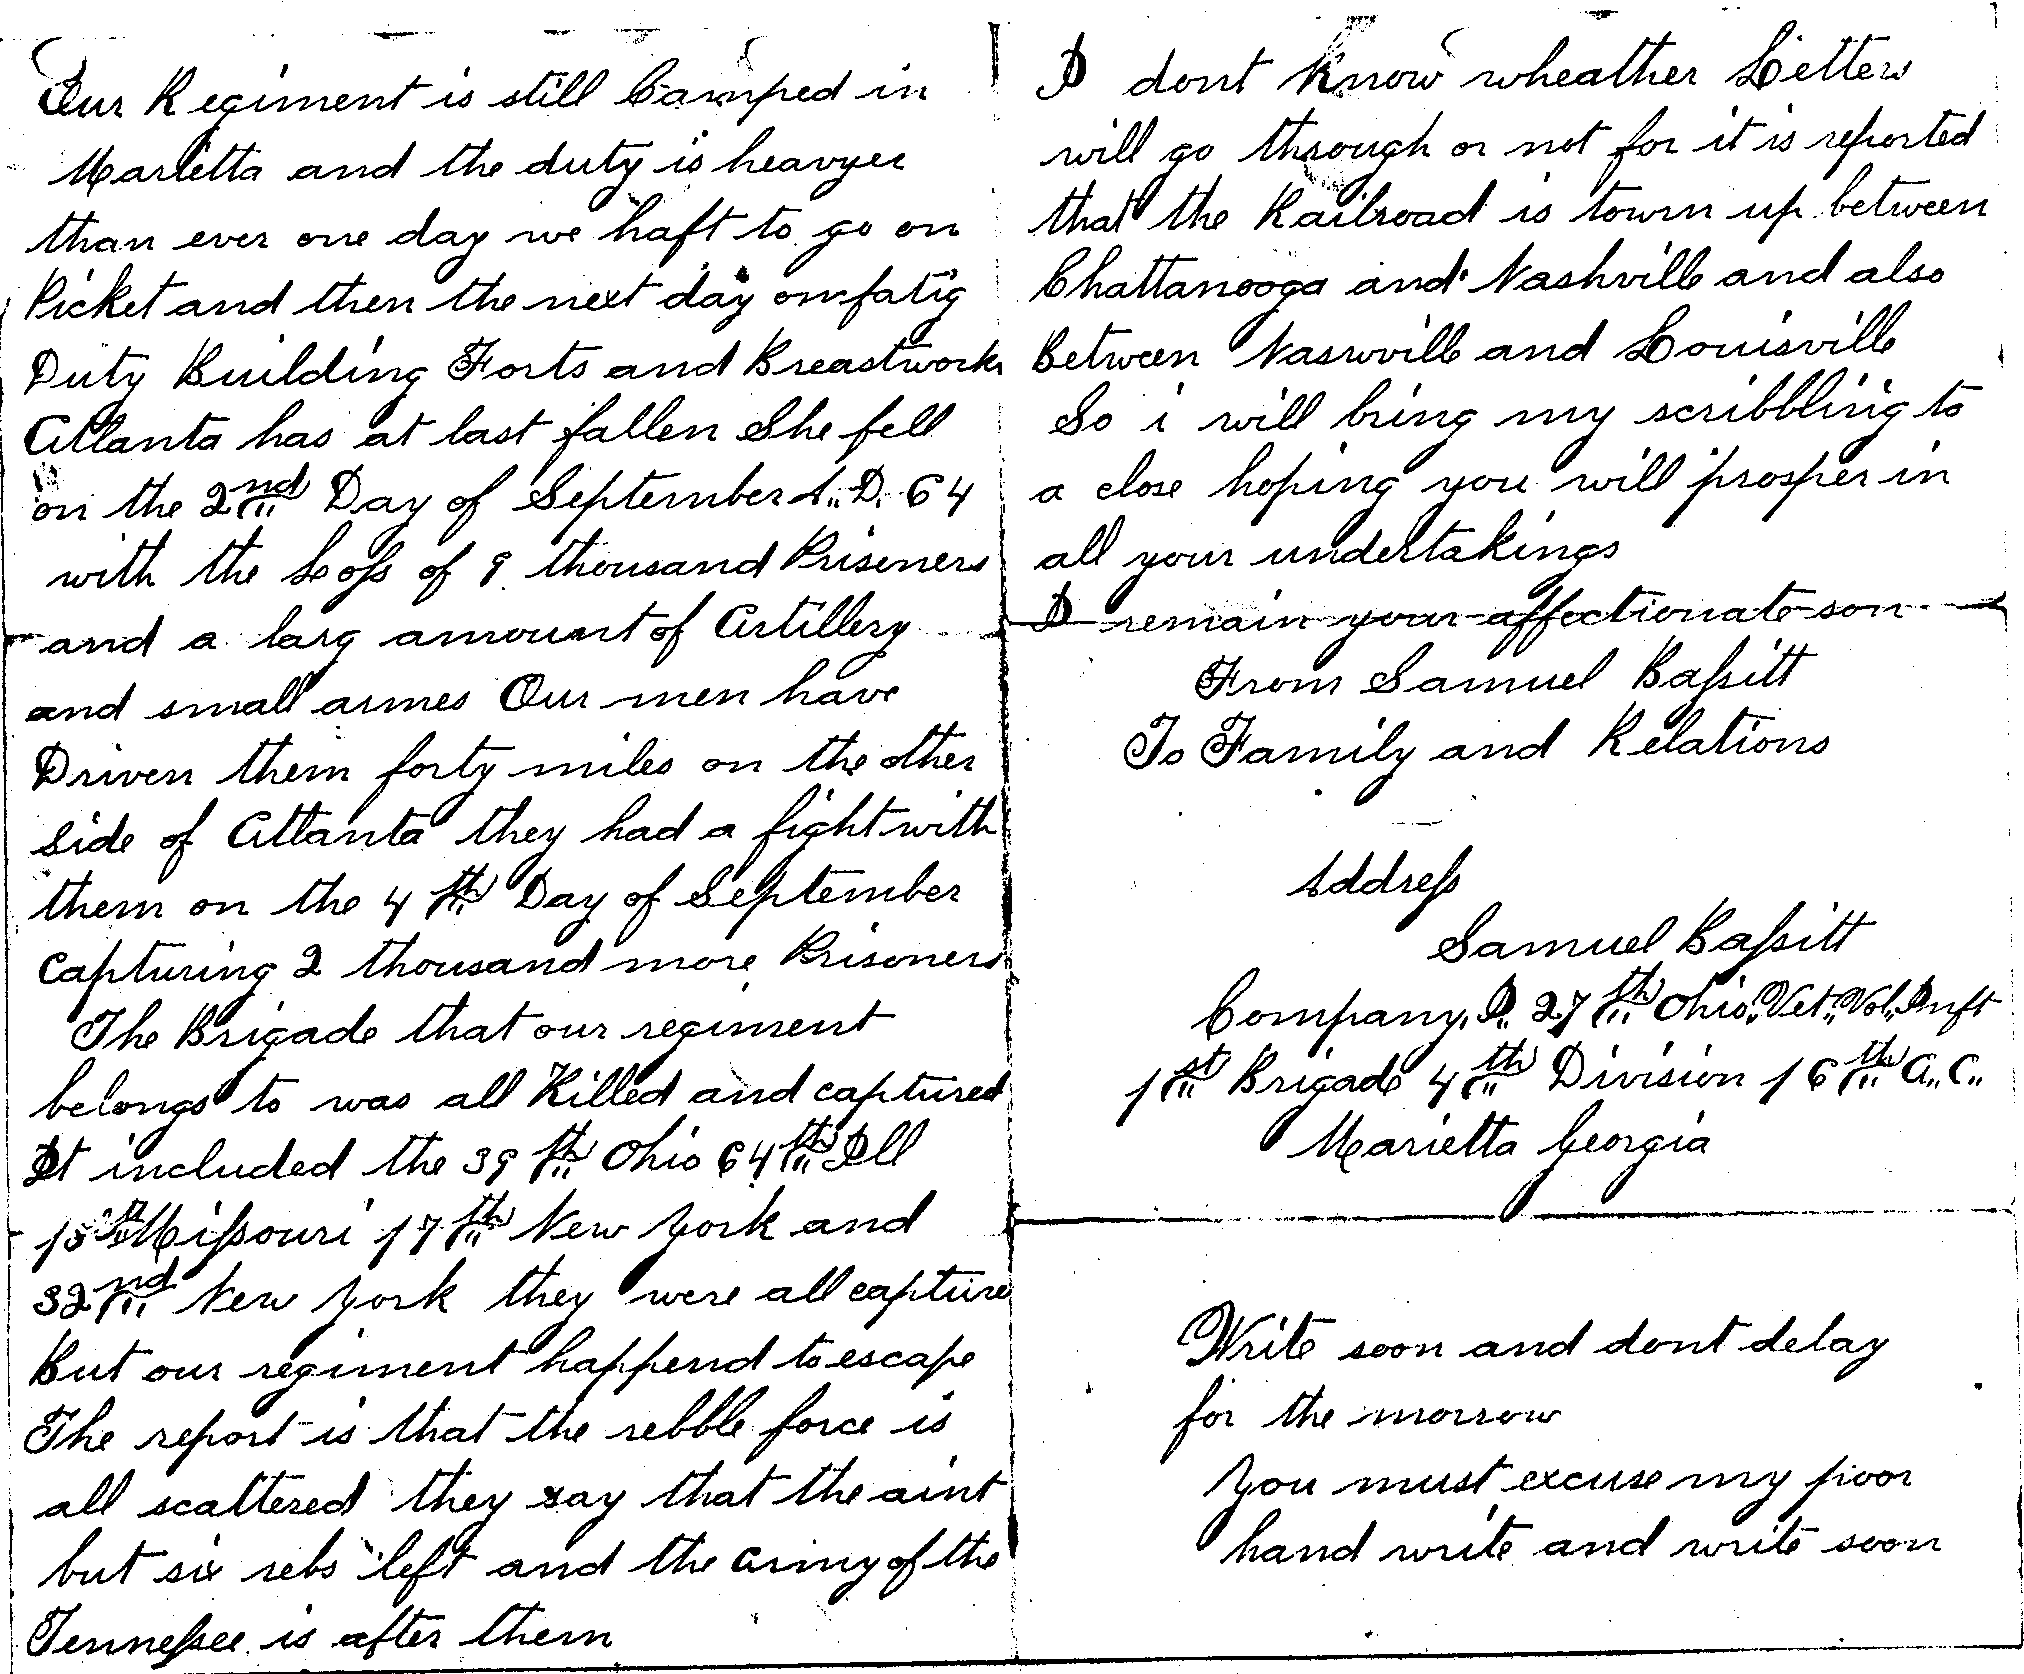 Our Regiment is still Camped in
Marietta and the duty is heavyer
than ever one day we haft to go on
Picket and then the next day on fatig
Duty Building Forts and Breastworks
Atlanta has at last fallen She fell
on the 2nd Day of September A.. D. 64
with the Loss of 9 thousand Prisoners
and a larg amount of Artillery
and small armes Our men have
Driven them forty miles on the other
side of Atlanta they had a fight with
them on the 4th Day of September
capturing 2 thousand more Prisoners
The Brigade that our regiment
belongs to was all Killed and captured
It included the 39th Ohio 64th Ill
18th Missouri 17th New York and
32nd New York they were all capture
But our regiment happend to escape
The report is that the rebble force is
all scattered they say that the aint
but six rebs left and the army of the
Tennessee is after them
I dont Know wheather Letters
will go through or not for it is reported
that the Railroad is town up between
Chattanooga and Nashville and also
Between Naswville and Louisville
So i will bring my scribbling to
a close hoping you will prosper in
all your undertakings
I remain your affectionate son
From Samuel Bassitt
To Family and Relations
Address
Samuel Bassitt
Company, I.. 27th Ohio, Vet.. Vol.. Inft
1st Brigade 4th Division 16th A.. C..
Marietta Georgia
Write soon and dont delay
for the morrow
You must excuse my poor
hand write and write soon